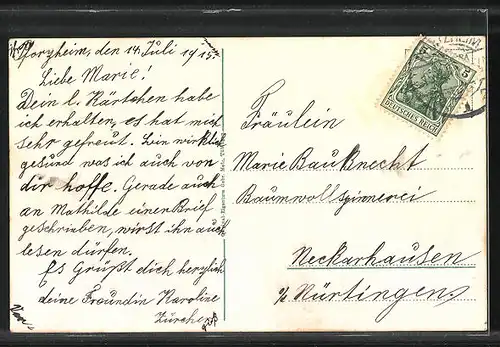 Pforzheim, den 14. Juli 1915.
Liebe Marie!
Dein l. Kärtchen habe
ich erhalten, es hat mich
sehr gefreut. Bin wirklich
gesund was ich auch von
dir hoffe. Gerade auch
an Mathilde einen Brief
geschrieben, wirst ihn auch
lesen dürfen.
Es Grüßt dich herzlich
deine Freundin Karoline
Zürcher
Fräulein
Marie Bauknecht
Baumwollspinnerei
Neckarhausen
Nürtingen
5 5
DEUTSCHES REICH